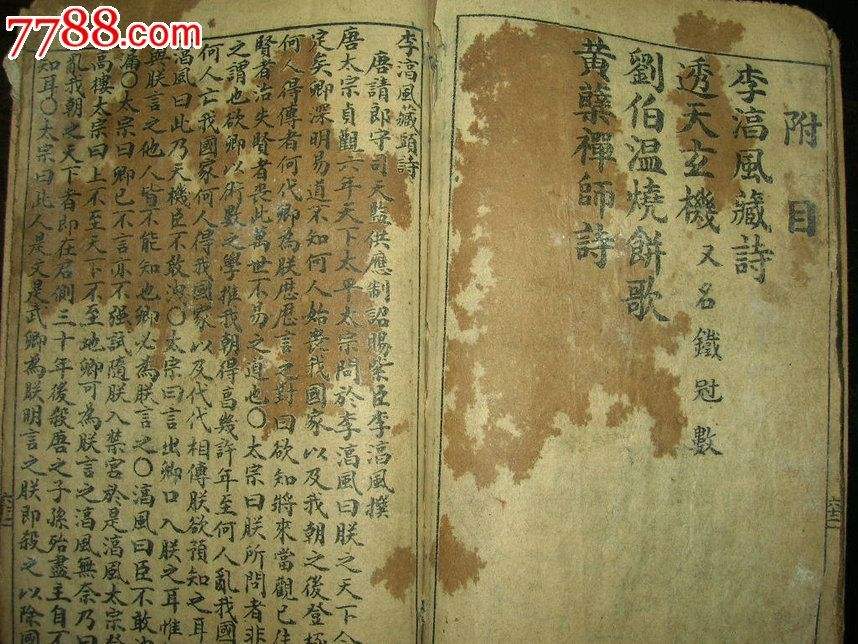 7788.com
附目
李湻風藏詩
透天玄機 又名鐵冠數
劉伯温燒餅歌
黃蘗禪師詩
李湻風藏頭詩
唐請郎守司天監供應制詔賜紫臣李湻風撰
唐太宗貞觀六年天下太平太宗問於李湻風曰朕之天下今
定矣卿深明易道不知何人始喪我國家以及我朝之後登極
何人得傳者何代卿為朕歷歷言之對曰欲知將來當觀已往
賢者治失賢者喪此萬世不易之道也〇太宗曰朕所問者非
之謂也欲卿以術數之學推我朝得享幾許年至何人亂我國
何人亡我國家何人得我國家以及代代相傳朕欲預知之耳
湻風曰此乃天機臣不敢洩〇太宗曰言出卿口入朕之耳惟
無朕言之他人皆不能知也卿必為朕言之〇湻風曰臣不敢洩
漏〇太宗曰卿已不言亦不强試隨朕入禁宮於是湻風太宗登
高樓太宗曰上不至天下不至地卿可為朕言之湻風無奈乃曰
亂我朝之天下者即在君側三十年後殺唐之子孫殆盡主自不
知耳〇太宗曰此人是文是武卿為朕明言之朕即殺之以除國